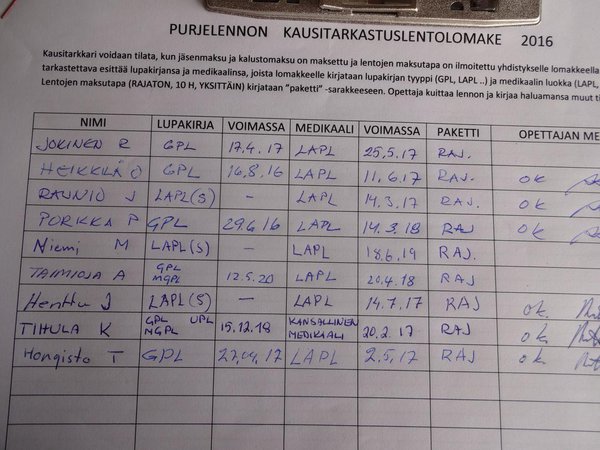 PURJELENNON KAUSITARKASTUSLENTOLOMAKE 2016
Kausitarkkari voidaan tilata, kun jäsenmaksu ja kalustomaksu on maksettu ja lentojen maksutapa on ilmoitettu yhdistykselle lomakkeella
tarkastettava esittää lupakirjansa ja medikaalinsa, joista lomakkeelle kirjataan lupakirjan tyyppi (GPL, LAPL ..) ja medikaalin luokka (LAPL,
Lentojen maksutapa (RAJATON, 10 H, YKSITTÄIN) kirjataan "paketti" -sarakkeeseen. Opettaja kuittaa lennon ja kirjaa haluamansa muut
NIMI LUPAKIRJA VOIMASSA MEDIKAALI VOIMASSA PAKETTI OPETTAJAN
JOKINEN R GPL 17.4.17 LAPL 25.5.17 RAJ.
HEIKKILÄ O GPL 16.8.16 LAPL 11.6.17 RAJ. OK
RAUNIO J LAPL(S) - LAPL 14.3.17 RAJ. OK
PORKKA P GPL 29.6.16 LAPL 14.3.18 RAJ OK
Niemi M LAPL(S) - LAPL 18.6.19 RAJ.
TAIMIOJA A GPL MGPL 12.5.20 LAPL 20.4.18 RAJ
Henttu J LAPL(S) - LAPL 14.7.17 RAJ ok.
TIHULA K GPL UPL MGPL 15.12.18 KANSALLINEN MEDIKAALI 20.2.17 RAJ ok
Hongisto T GPL LAPL 2.5.17 RAJ ok